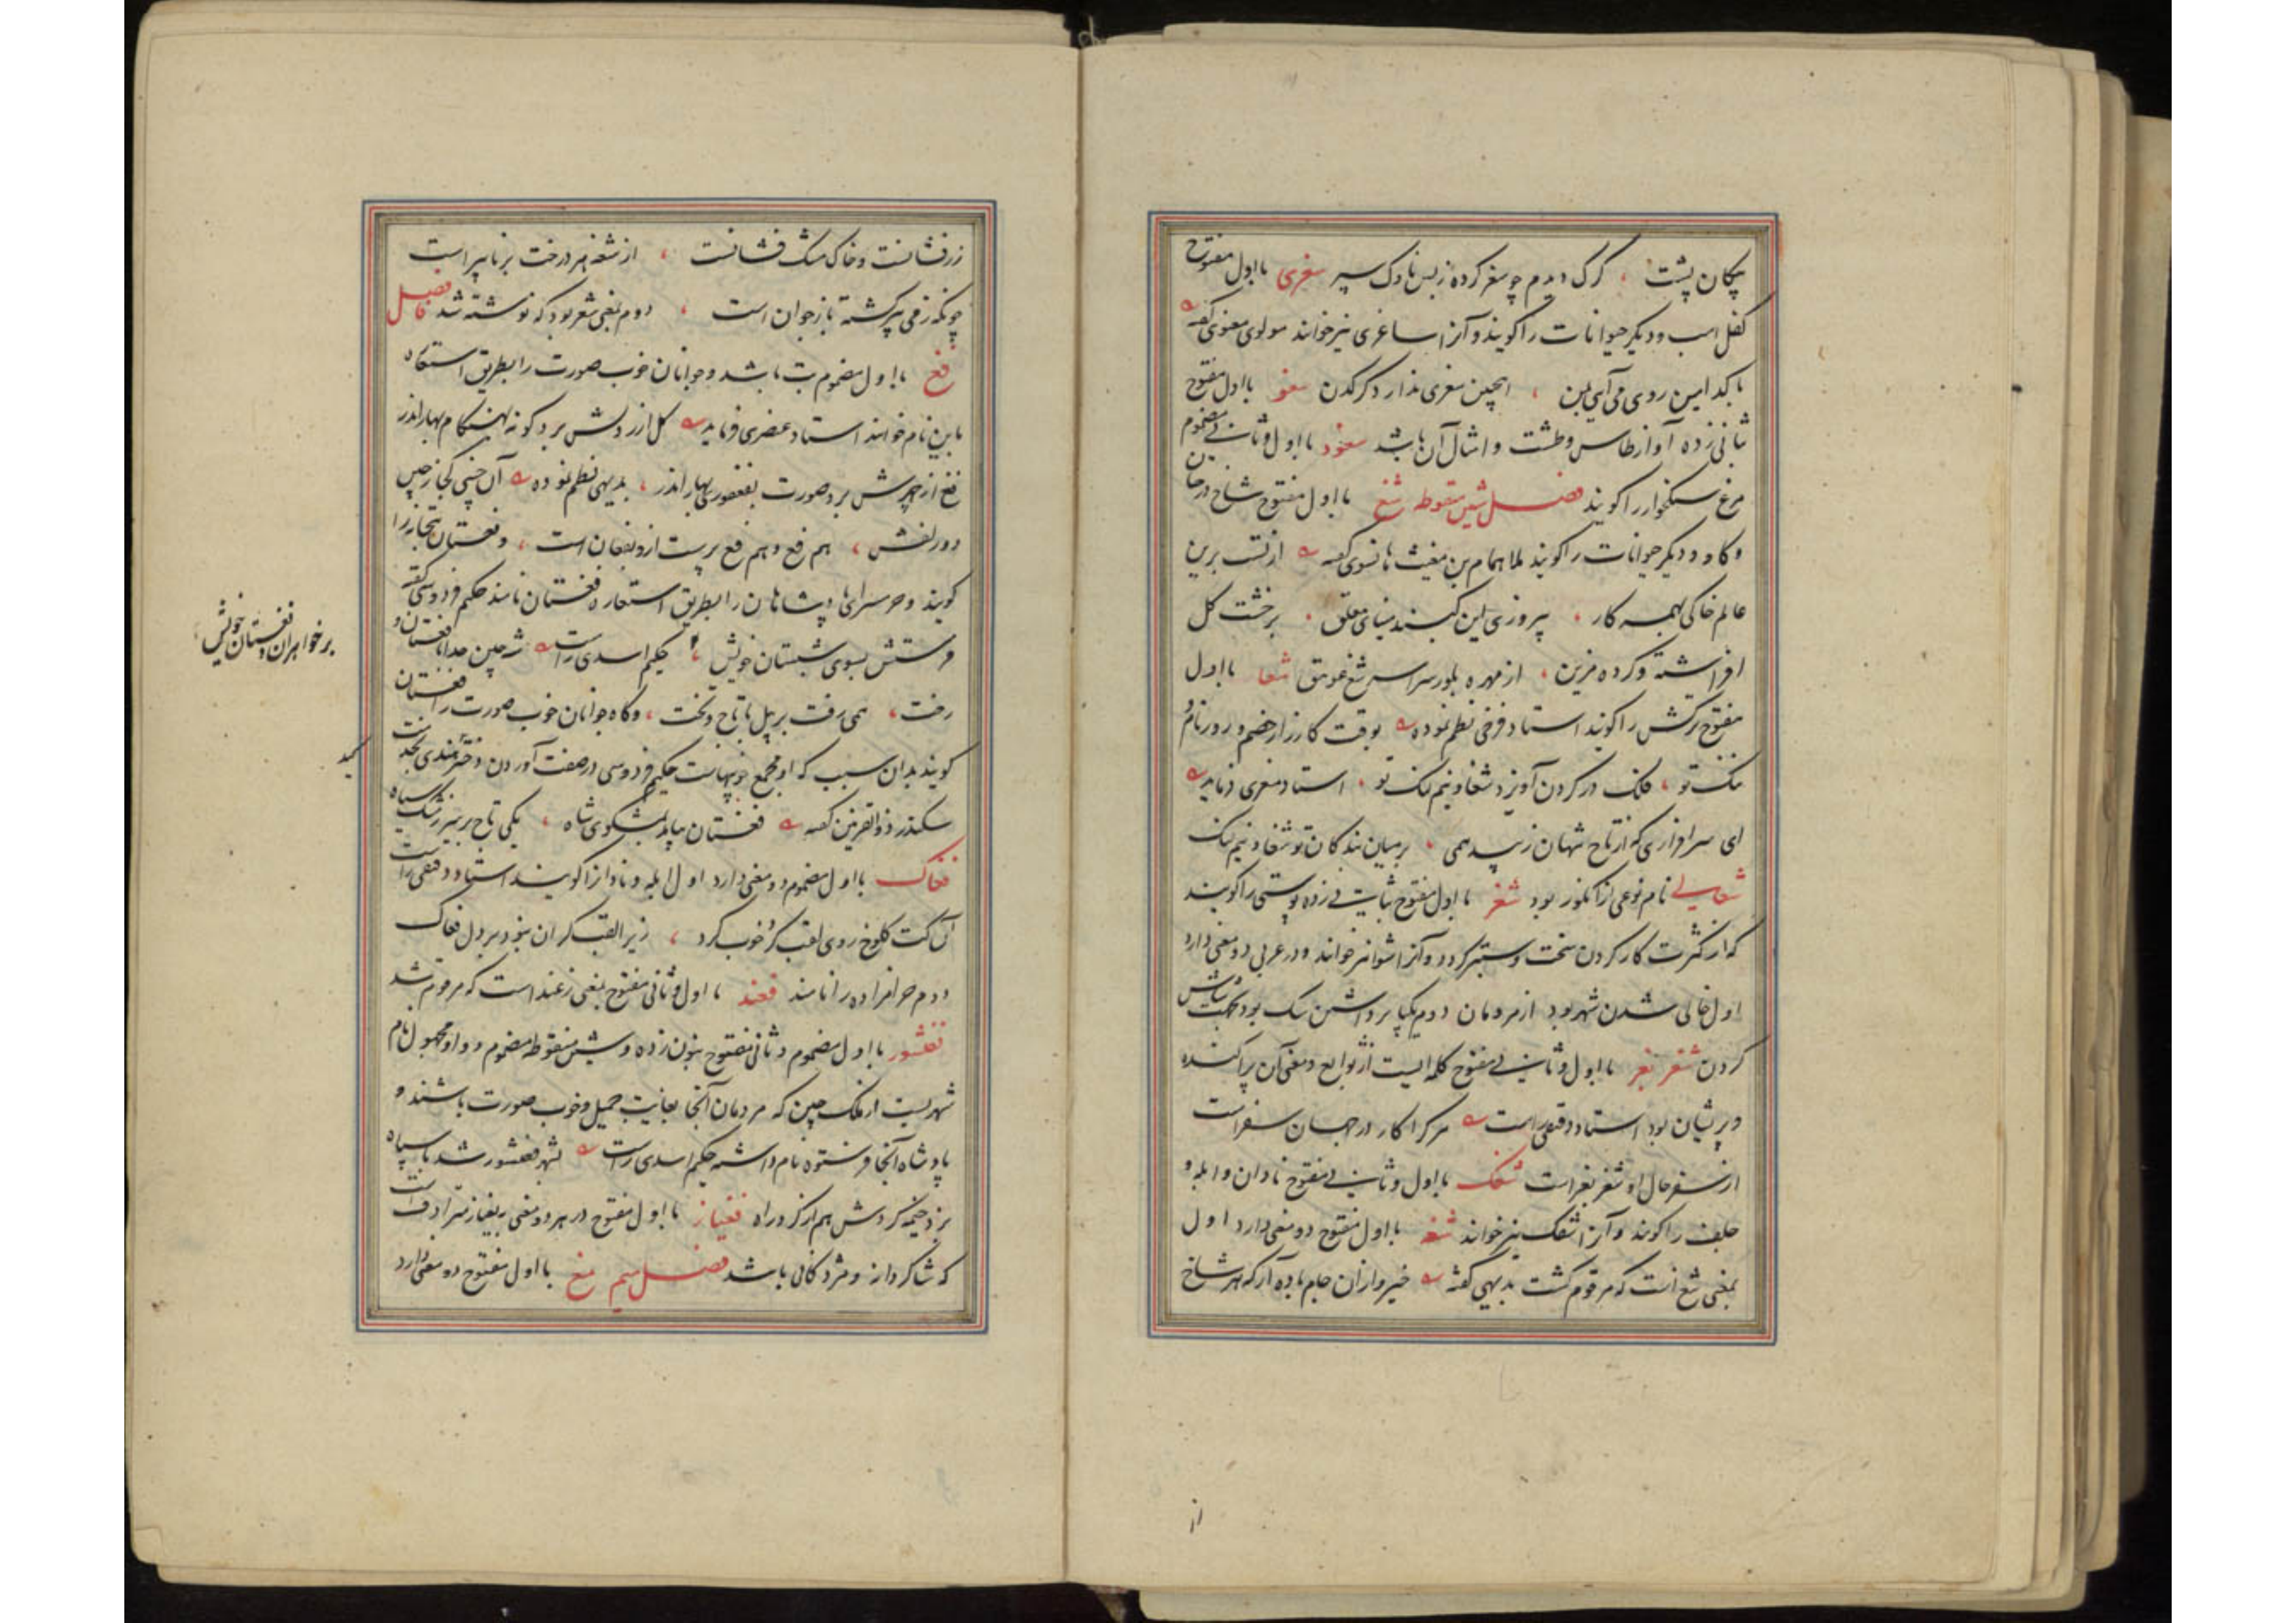 پیکان پشت ، کرک دیدم چو سغر کرده زبس ناوک سپر سغری بااول مفتوح
کفل اسب و دیکر حیوانات را کویند و آنرا ساغری نیز خوانند مولوی معنوی کفته
با کدامین روی می آیی بمن ، اینچنین سغری ندارد کرکدن سغو بااول مفتوح
بثانی زده آواز طاس و طشت و امثال آن باشد سغود بااول و ثانی مضموم
مرغ سنکخوار را کویند فصل شین منقوطه شغ بااول مفتوح شاخ درختان
و کاو و دیکر حیوانات را کویند همام بن مغیث هانسوی کفته از تست برین
عالم خاکی همه کار ، پیروزی این کنبد مینای معلق ، برخشت کل
افراشته و کرده مزین ، از مهره بلور سراسر شغ شغا بااول
مفتوح ترکش را کویند استاد فرخی نظم نموده بوقت کارزار خصم و روز نام و
ننک تو ، فلک در کردن آویزد شغا و نیم لنک تو ، استاد معزی فرماید
ای سرافرازی که از تاج شهان زیبد همی ، بر میان بندکان تو شغا و نیم لنک
نام نوعی از انکور بود شغر بااول مفتوح بثانی زده پوستی را کویند
که از کثرت کار کردن سخت و ستبر کردد و آنرا شوا نیز خوانند و در عربی دو معنی دارد
اول خالی شدن شهر بود از مردمان دوم یکپا برداشتن سک بود بجهت شاش
کردن شغر بغر بااول و ثانی مفتوح کلمه ایست از توابع و معنی آن پراکنده
و پریشان بود استاد دقیقی راست هر کرا کار در جهان سفر است
از سفر حال او شغر بغر است شغک بااول و ثانی مفتوح نادان و ابله و
جلف را کویند و آنرا شفک نیز خوانند شغه بااول مفتوح دو معنی دارد اول
بمعنی شغ است که مرقوم کشت بدیهی کفته خیز و از آن جام باده آر که هر شاخ
از
زرفشانست و خاک مشک فشانست ، از شغه هر درخت برنا پیر است
چونکه ز می پیر کشته باز جوان است ، دوم بمعنی شغر بود که نوشته شد فصل فا
فغ بااول مضموم بت باشد و جوانان خوب صورت را بطریق استعاره
باین نام خوانند استاد عنصری فرماید کل از رویش برد کونه بهنکام بهار اندر
فغ از چهرش برد صورت بفغفوری بهار اندر ، بدیهی نظم نموده آن چینی کز چین
دو زلفش ، هم فغ و هم فغ پرست از و بفغان است ، و فغستان بتخانه را
کویند و حرمسرای پادشاهان را بطریق استعاره فغستان نامند حکیم فردوسی کفته
فرستش بسوی شبستان خویش ، حکیم اسدی راست شه چین جدا با فغستان و
رخت ، همی رفت بر پیل با تاج و تخت ، و کاه جوانان خوب صورت را فغستان
کویند بدان سبب که او مجمع خوبیهاست حکیم فردوسی در صفت آوردن دختر هندی بخدمت
سکندر ذوالقرنین کفته فغستان بیامد بمشکوی شاه ، یکی تاج بر سر ز مشک سیاه
فغاک بااول مضموم دو معنی دارد اول ابله و نادانرا کویند استاد دقیقی راست
آن کت کلوخ روی لقب کرد خوب کرد ، زیرا لقب کران نبود بر دل فغاک
دوم حرامزاده را نامند فغند بااول و ثانی مفتوح بمعنی زغند است که مرقوم شد
فغنشور بااول مضموم و ثانی مفتوح بنون زده و شین منقوطه مضموم و واو مجهول نام
شهریست از ملک چین که مردمان آنجا بغایت جمیل و خوب صورت باشند و
پادشاه آنجا فرستوه نام داشته حکیم اسدی راست بشهر فغنشور شد با سپاه
بزد خیمه کردش هم از کرد راه فغیاز بااول مفتوح در هر دو معنی بغیاز مترادفست
که شاکردانه و مژدکانی باشد فصل میم مغ بااول مفتوح دو معنی دارد
بر خواهران و فغستان خویش